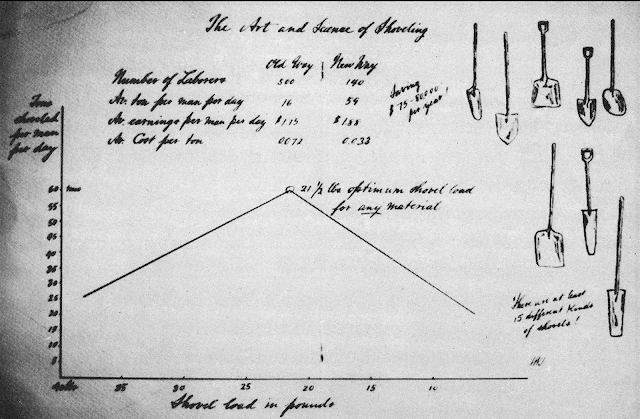 The Art and Science of Shoveling
Old Way New Way
Number of Laborers 500 140
Av. ton per man per day 16 59
Av. earnings per man per day $1.15 $1.88
Av. Cost per ton .0072 0.033
Saving
$75-80000
per year!
Tons
shoveled
per man
per day
60 tons
55
50
45
40
35
30
25
20
15
10
5
21 1/2 lbs optimum shovel load
for any material
There are at least
15 different kinds
of shovels!
40lbs 35 30 25 20 15 10
Shovel load in pounds